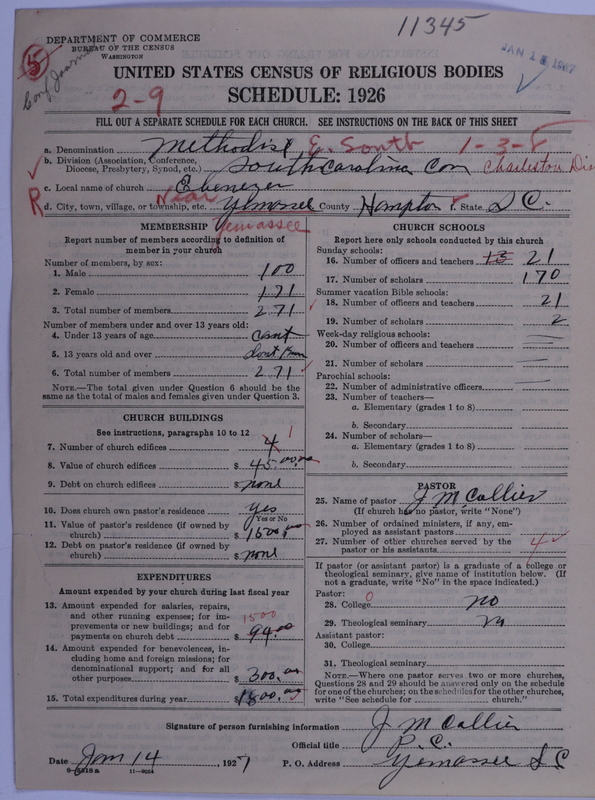 11345
DEPARTMENT OF COMMERCE
BUREAU OF THE CENSUS
WASHINGTON
JAN 1
5
UNITED STATES CENSUS OF RELIGIOUS BODIES
2-9
SCHEDULE: 1926
FILL OUT A SEPARATE SCHEDULE FOR EACH CHURCH. SEE INSTRUCTIONS ON THE BACK OF THIS SHEET
a. Denomination Methodist E. South 1-3-8
b. Division (Association, Conference,
Diocese, Presbytery, Synod, etc.) South Carolina Con Charleston Dis
c. Local name of church Ebenezer
R d. City, town, village, or township, etc. Near Yemassee County Hampton f. State S C.
Yemassee
MEMBERSHIP
Report number of members according to definition of
member in your church
Number of members, by sex:
1. Male 100
2. Female 171
3. Total number of members 271
Number of members under and over 13 years old:
4. Under 13 years of age cant
5. 13 years old and over dont know
6. Total number of members 271
NOTE.—The total given under Question 6 should be the
same as the total of males and females given under Question 3.
CHURCH BUILDINGS
See instructions, paragraphs 10 to 12
7. Number of church edifices 4 1
8. Value of church edifices $ 45.00
9. Debt on church edifices $ none
10. Does church own pastor's residence yes
Yes or No
11. Value of pastor's residence (if owned by
church) $ 1500
12. Debt on pastor's residence (if owned by
church) $ none
EXPENDITURES
Amount expended by your church during last fiscal year
13. Amount expended for salaries, repairs,
and other running expenses; for im-
provements or new buildings; and for
payments on church debt $ 94.00
1500
14. Amount expended for benevolences, in-
cluding home and foreign missions; for
denominational support; and for all
other purposes $ 300.00
15. Total expenditures during year $ 1800.00
CHURCH SCHOOLS
Report here only schools conducted by this church
Sunday schools:
16. Number of officers and teachers 13 21
17. Number of scholars 170
Summer vacation Bible schools:
18. Number of officers and teachers 21
19. Number of scholars 2
Week-day religious schools:
20. Number of officers and teachers
21. Number of scholars
Parochial schools:
22. Number of administrative officers
23. Number of teachers—
a. Elementary (grades 1 to 8)
b. Secondary
24. Number of scholars—
a. Elementary (grades 1 to 8)
b. Secondary
PASTOR
25. Name of pastor J M Collier
(If church has no pastor, write "None")
26. Number of ordained ministers, if any, em-
ployed as assistant pastors
27. Number of other churches served by the
pastor or his assistants 4
If pastor (or assistant pastor) is a graduate of a college or
theological seminary, give name of institution below. (If
not a graduate, write "No" in the space indicated.)
Pastor:
28. College 0 no
29. Theological seminary
Assistant pastor:
30. College
31. Theological seminary
NOTE.—Where one pastor serves two or more churches,
Questions 28 and 29 should be answered only on the schedule
for one of the churches; on the schedules for the other churches,
write "See schedule for church."
Signature of person furnishing information J M Collier
Official title P. C.
Date Jan 14, 1927 P. O. Address Yemassee S C
11—9054